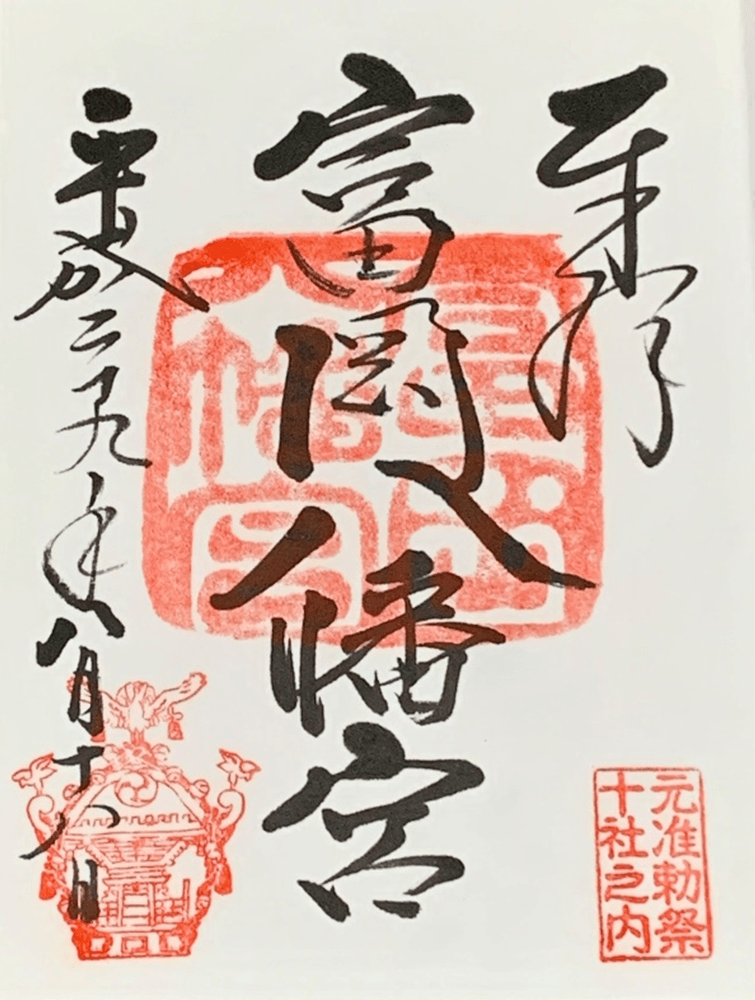 奉拝
富岡八幡宮
平成二十九年八月十八日
元准勅祭
十社之内